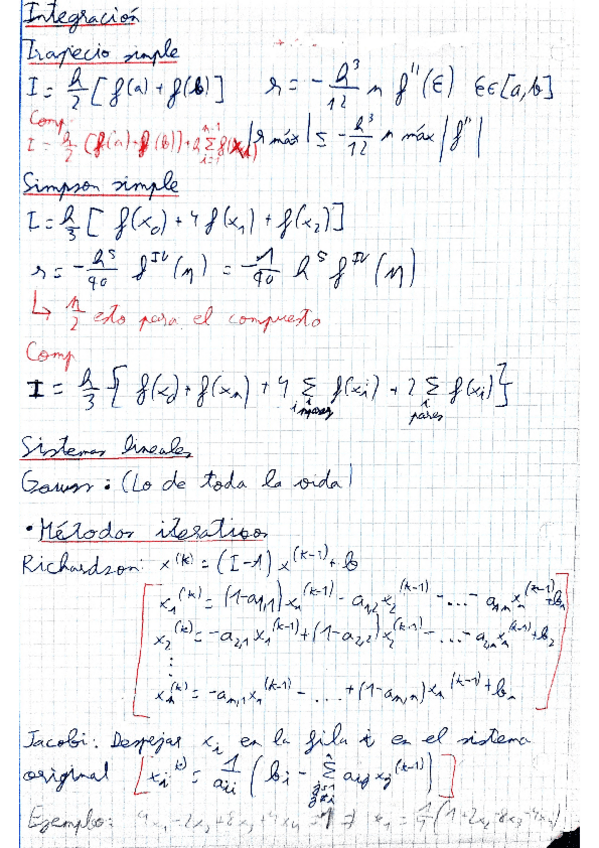 Integración
Trapecio simple
I = h/2 [f(a) + f(b)]   r = - h³/12 n f''(ε)  ε∈[a,b]
Comp:
I = h/2 (f(a)+f(b)) + h Σ_{i=1}^{n-1} f(x_i)   |r máx| ≤ - h³/12 n máx |f''|
Simpson simple
I = h/3 [f(x₀) + 4 f(x₁) + f(x₂)]
r = - h⁵/90 f^{IV}(η) = -1/90 h⁵ f^{IV}(η)
↳ n/2 esto para el compuesto
Comp
I = h/3 [f(x₀) + f(xₙ) + 4 Σ_{i impares} f(x_i) + 2 Σ_{i pares} f(x_i)]
Sistemas lineales
Gauss: (Lo de toda la vida)
• Métodos iterativos
Richardson: x^{(k)} = (I-A) x^{(k-1)} + b
x₁^{(k)} = (1-a_{1,1}) x₁^{(k-1)} - a_{1,2} x₂^{(k-1)} - ... - a_{1,n} xₙ^{(k-1)} + b₁
x₂^{(k)} = -a_{2,1} x₁^{(k-1)} + (1-a_{2,2}) x₂^{(k-1)} - ... - a_{2,n} xₙ^{(k-1)} + b₂
⋮
xₙ^{(k)} = -a_{n,1} x₁^{(k-1)} - ... + (1-a_{n,n}) xₙ^{(k-1)} + bₙ
Jacobi: Despejar x_i en la fila i en el sistema
original [x_i^{(k)} = 1/a_{ii} (b_i - Σ_{j=1, j≠i}^{n} a_{ij} x_j^{(k-1)})]
Ejemplo: